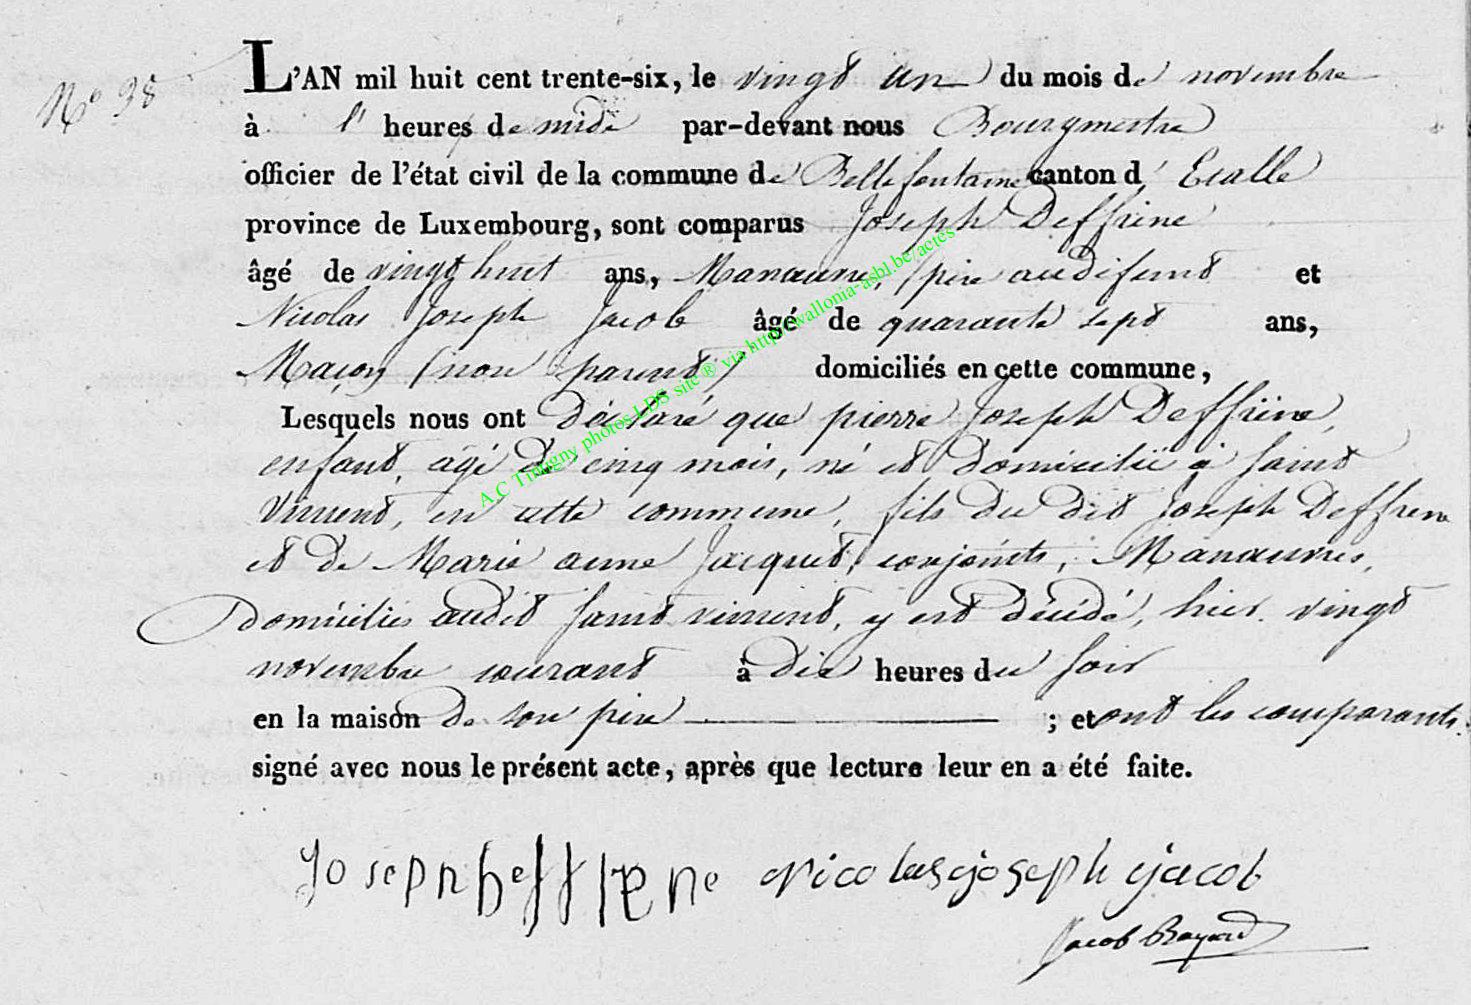 N° 38
L'AN mil huit cent trente-six, le vingt un du mois de novembre
à l' heures de midi par-devant nous Bourgmestre
officier de l'état civil de la commune de Bellefontaine canton d' Etalle
province de Luxembourg, sont comparus Joseph Deffrene
âgé de vingt huit ans, Manœuvre, (père au défunt et
Nicolas Joseph Jacob âgé de quarante sept ans,
Maçon (non parent) domiciliés en cette commune,
Lesquels nous ont déclaré que pierre Joseph Deffrene,
enfant, âgé de cinq mois, né et domicilié à Saint
Vincent, en cette commune, fils du dit Joseph Deffrene
et de Marie anne Jacquet, conjoints, Manœuvres,
Domiciliés audit Saint vincent, y est décédé, hier vingt
novembre courant à dix heures du soir
en la maison de son père ; et ont les comparants
signé avec nous le présent acte, après que lecture leur en a été faite.
Joseph deffrene Nicolas joseph jacob
Jacob
A.C Tintigny photos LDS site ® via http://wallonia-asbl.be/actes